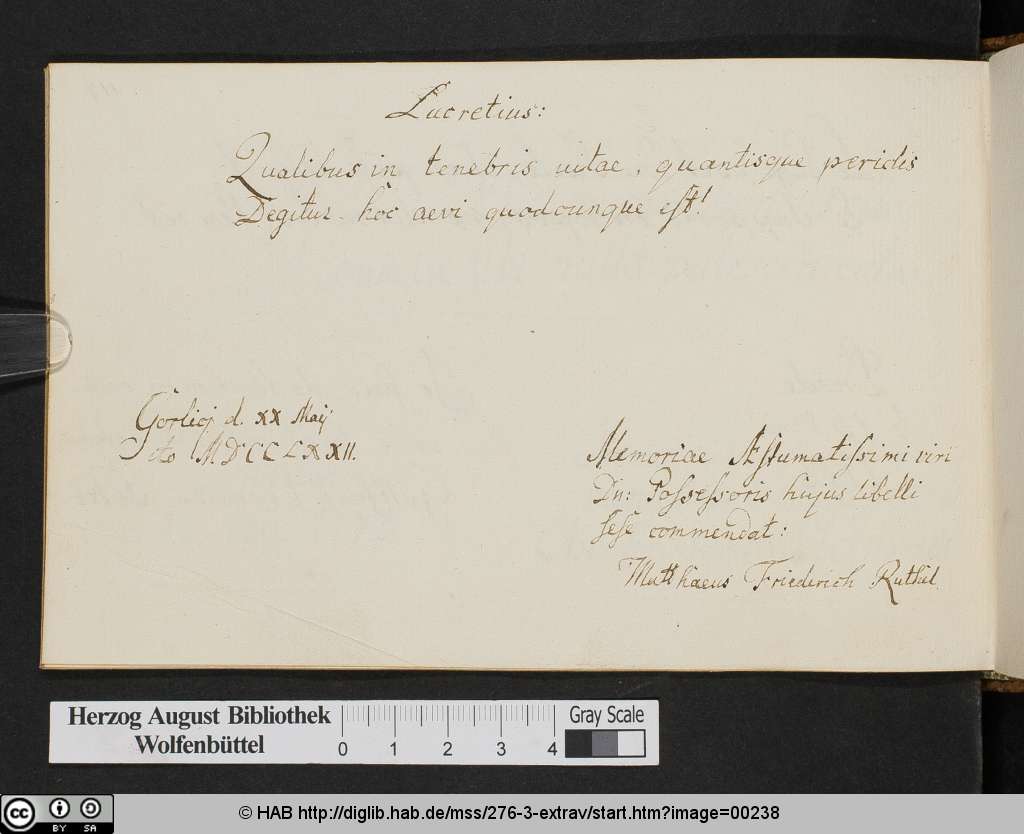 Lucretius:
Qualibus in tenebris vitae, quantisque periclis
Degitur hoc aevi quodcunque est!
Gorlicj d. XX Maij
Ao MDCCLXXII.
Memoriae Æstumatissimi viri
Dn: Possessoris hujus libelli
sese commendat:
Matthaeus Friederich Ruthil
Herzog August Bibliothek
Wolfenbüttel
0 1 2 3 4
Gray Scale
cc BY SA
© HAB http://diglib.hab.de/mss/276-3-extrav/start.htm?image=00238